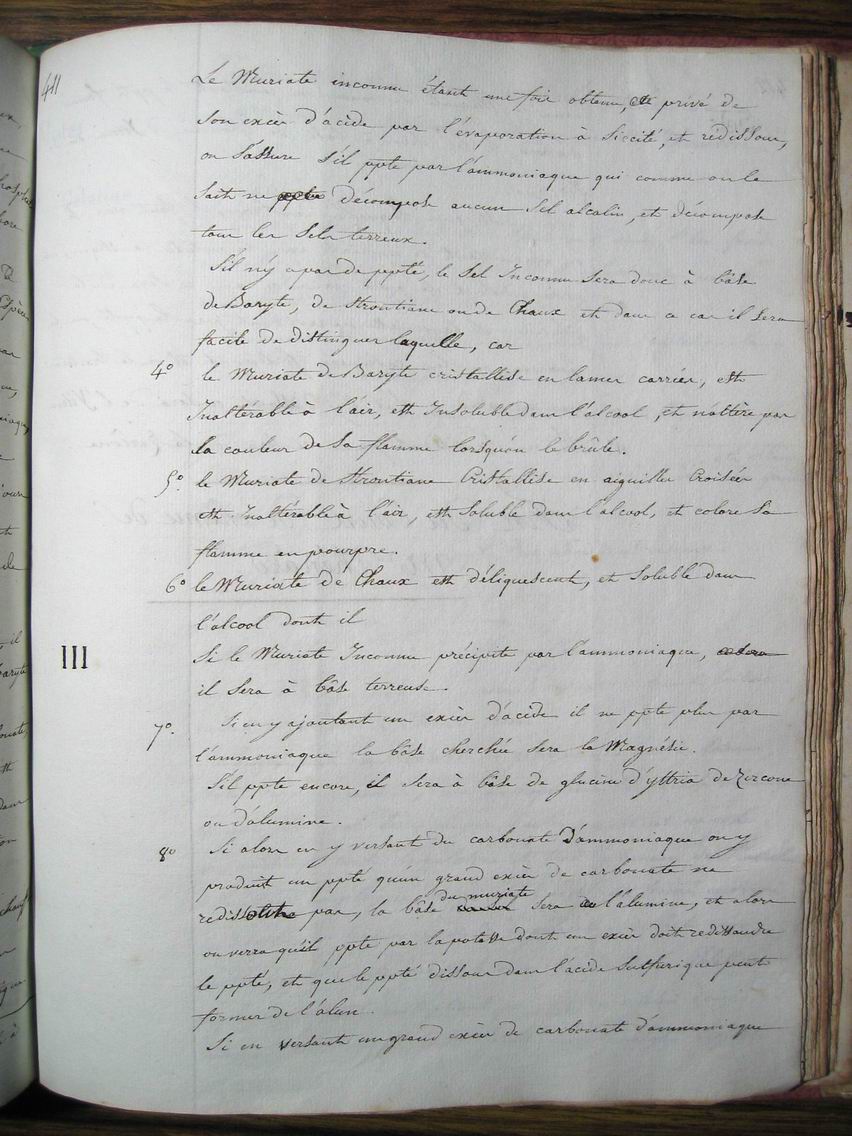 411
Le Muriate inconnu étant une fois obtenu, et privé de
son excès d'acide par l'évaporation à Siccité, et rédissous,
on s'assure s'il ppte par l'ammoniaque qui comme on le
sait ne ppte décompose aucun Sel alcalin, et décompose
tous les Sels terreux.
S'il n'y a pas de ppté, le Sel Inconnu sera donc à bâse
de Baryte, de Strontiane ou de Chaux et dans ce cas il sera
facile de distinguer laquelle, car
4° le Muriate de Baryte cristallise en lames carrées, est
Inaltérable à l'air, est Insoluble dans l'alcool, et n'altère pas
la couleur de sa flamme lorsqu'on le brûle.
5° le Muriate de Strontiane Cristallise en aiguilles Croisées
est Inaltérable à l'air, est Soluble dans l'alcool, et colore sa
flamme en pourpre.
6° le Muriate de Chaux est déliquescent, et Soluble dans
l'alcool dont il
III Si le Muriate Inconnu précipite par l'ammoniaque,
il sera à bâse terreuse.
7° Si en y ajoutant un excès d'acide il ne ppte plus par
l'ammoniaque la bâse cherchée sera la Magnésie.
S'il ppte encore, il sera à bâse de glucine d'yttria de Zircone
ou d'alumine.
8° Si alors en y versant du carbonate D'ammoniaque on y
produit un ppté qu'un grand excès de carbonate ne
redissolve pas, la bâse du muriate sera de l'alumine, et alors
on verra qu'il ppte par la potasse dont un excès doit redissoudre
le ppté, et que le ppté dissous dans l'acide Sulfurique peut
former de l'alun.
Si en versant un grand excès de carbonate d'ammoniaque